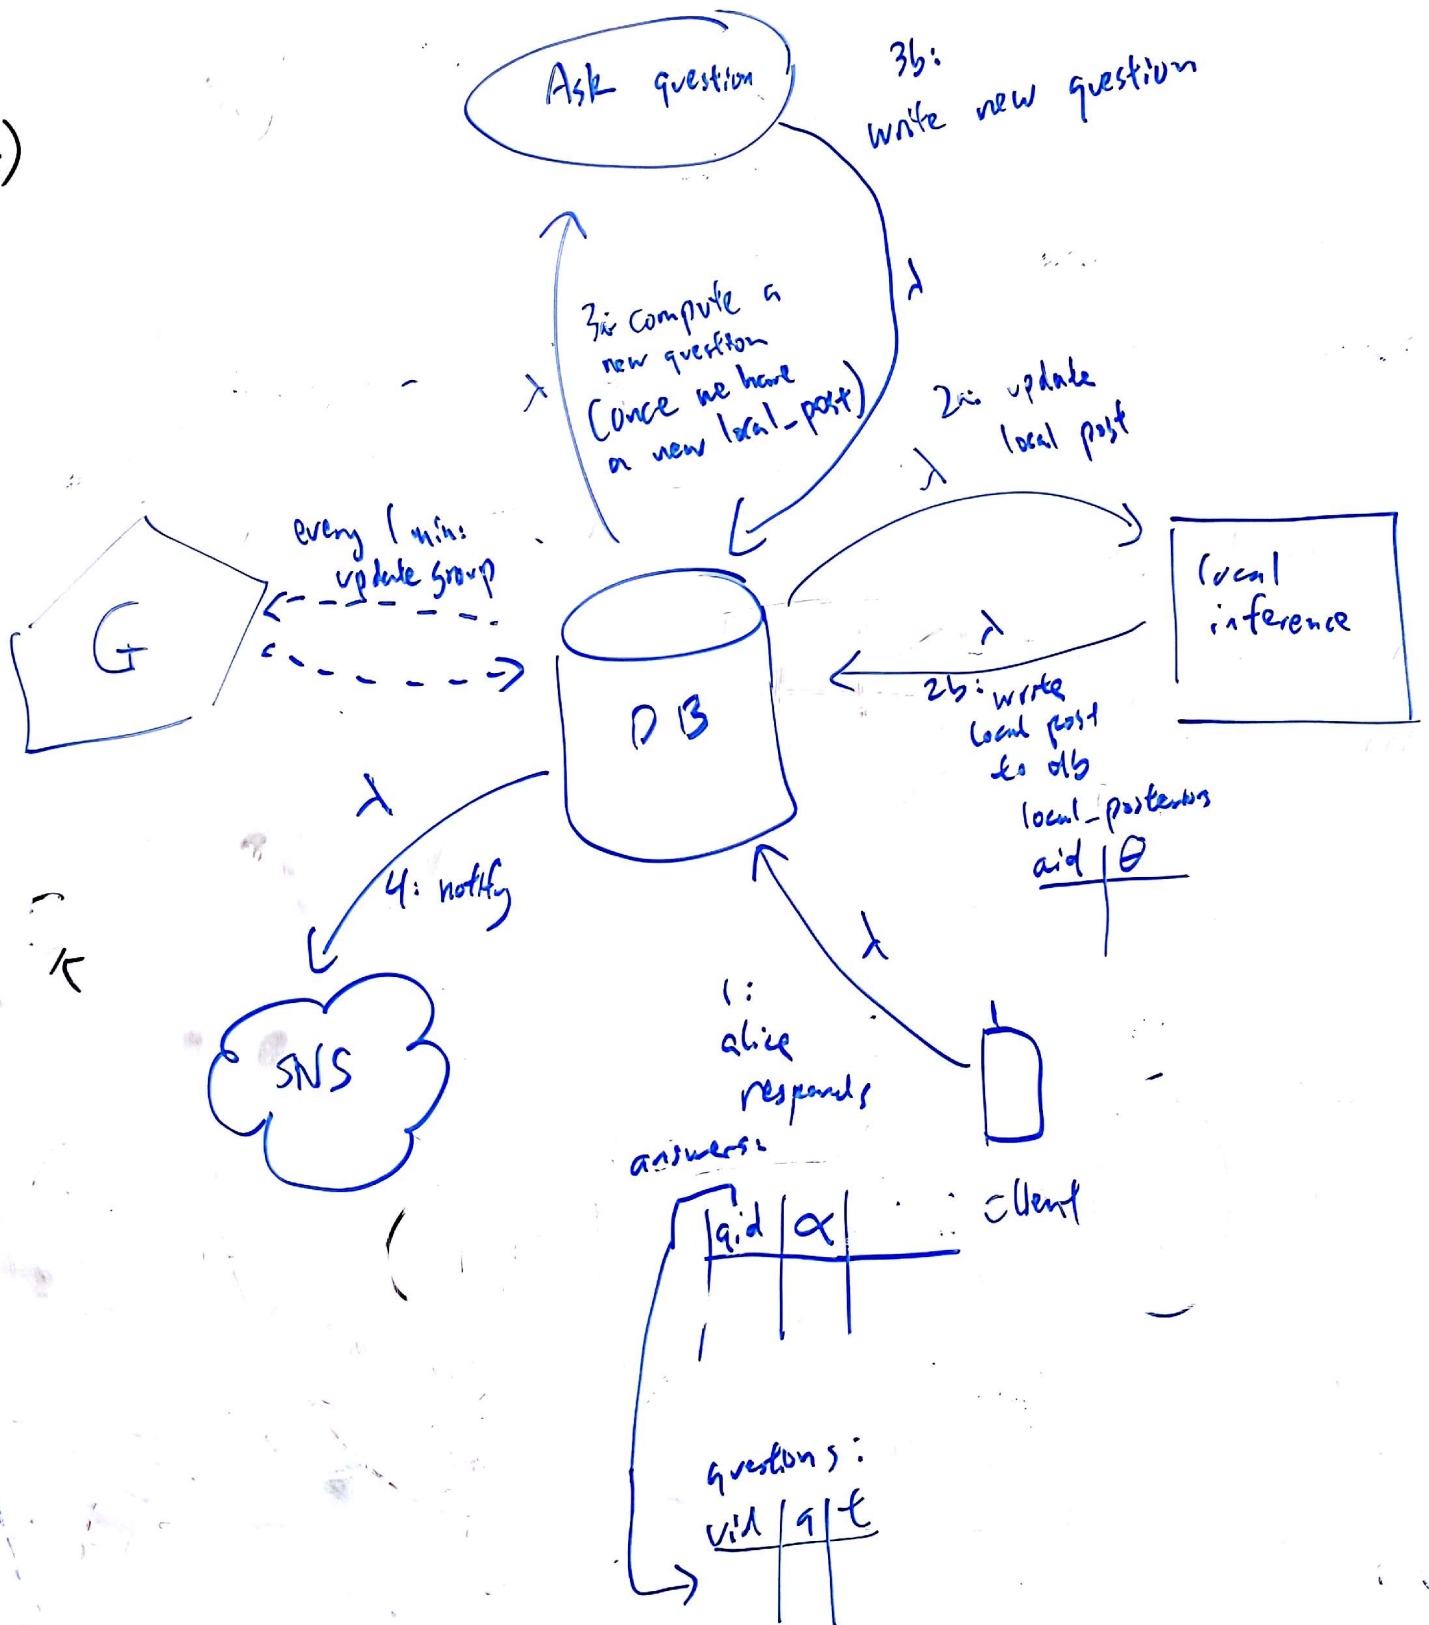 Ask question
3b:
write new question
λ
3a: compute a
new question
(once we have
a new local_post)
λ
2a: update
local post
λ
every 1 min:
update group
G
DB
local
inference
λ
2b: write
local post
to db
local_posteriors
aid | θ
λ
4: notify
SNS
λ
1:
alice
responds
client
answers:
qid | α
questions:
uid | q | t